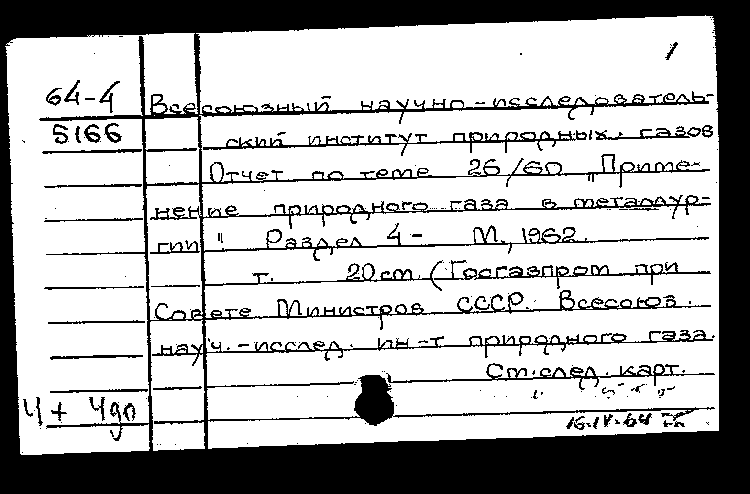 1
64-4 Всесоюзный научно-исследователь-
5166 ский институт природных газов
Отчет по теме 26/60 „Приме-
нение природного газа в металлур-
гии" Раздел 4- М., 1962.
т. 20 см (Госгазпром при
Совете Министров СССР. Всесоюз.
науч.-исслед. ин-т природного газа.
Ст. след. карт.
4+ 4 др
16.IV.64